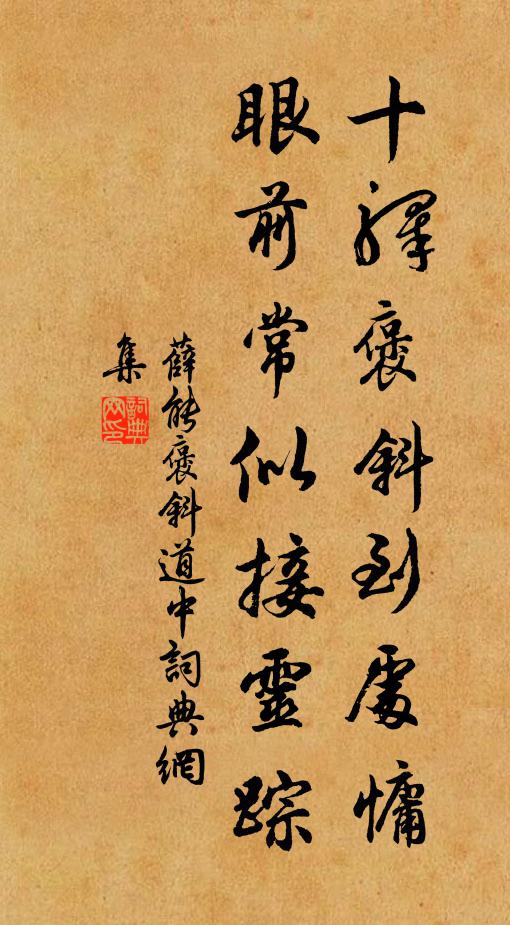 十驛褒斜到處慵
眼前常似接靈踪
薛能褒斜道中詞典網
集
詞典網印